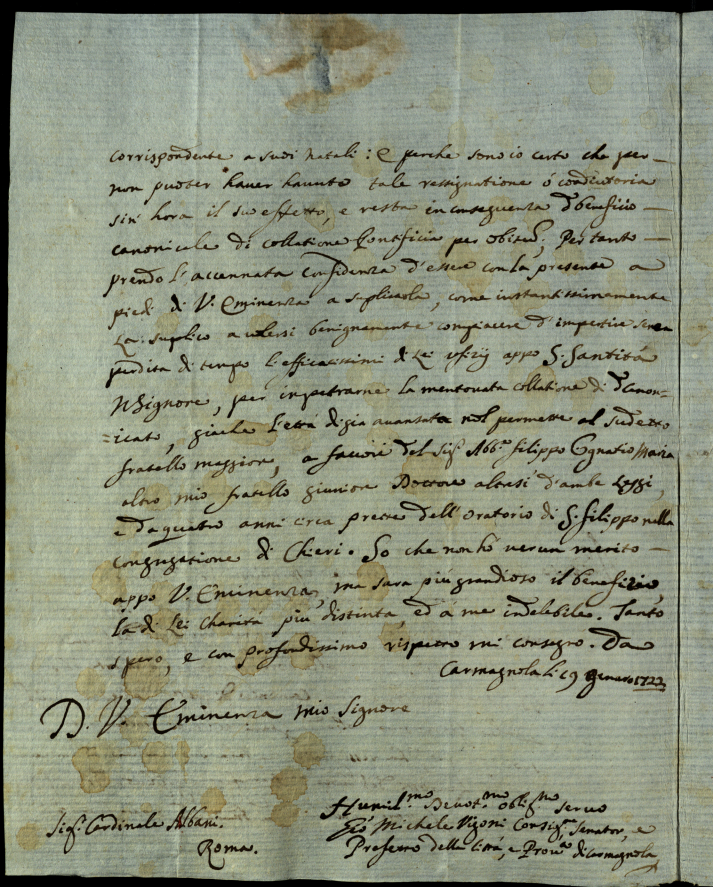 corrispondente a suoi natali: e perche sono io certo che per
non puoter haver haunto tale ressignatione ó coadiutoria
sin' hora il suo effetto, e resta in conseguenza d° beneficio
canonicale di collatione Pontificia per obitum; Per tanto
prendo l'accennata confidenza d'essere con la presente a
piedi di V. Eminenza a suplicarla, come instantissimamente
La suplico a volersi benignamente compiacere d'impartire senza
perdita di tempo l'efficacissimi di Lei uffizij appo S. Santitá
N Signore, per impetrarne la mentovata collatione di d° Canon-
=icato, giache l'etá di gia avanzata nol permette al sudetto
fratello maggiore, a favore del Sig.r Abb.e Filippo Ignatio Maria
altro mio fratello giuniore Dottore altresi d'ambe Leggi,
e da quatro anni circa prette dell'Oratorio di S. Filippo nella
congregatione di Chieri. So che non hó verun merito
appo V. Eminenza, ma sara piú grandioso il benefizio,
la di Lei charitá piú distinta, ed á me indelebile. Tanto
spero, e con profondissimo rispetto mi consegno. Da
Carmagnola li 19 Genaro 1722
D. V. Eminenza mio Signore
Humil.mo Devot.mo Oblig.mo Servo
Gió Michele Vigoni Consig.r, Senator, e
Prefetto della Cittá, e Prov.a di Carmagnola
Sig.r Cardinale Albani.
Roma.